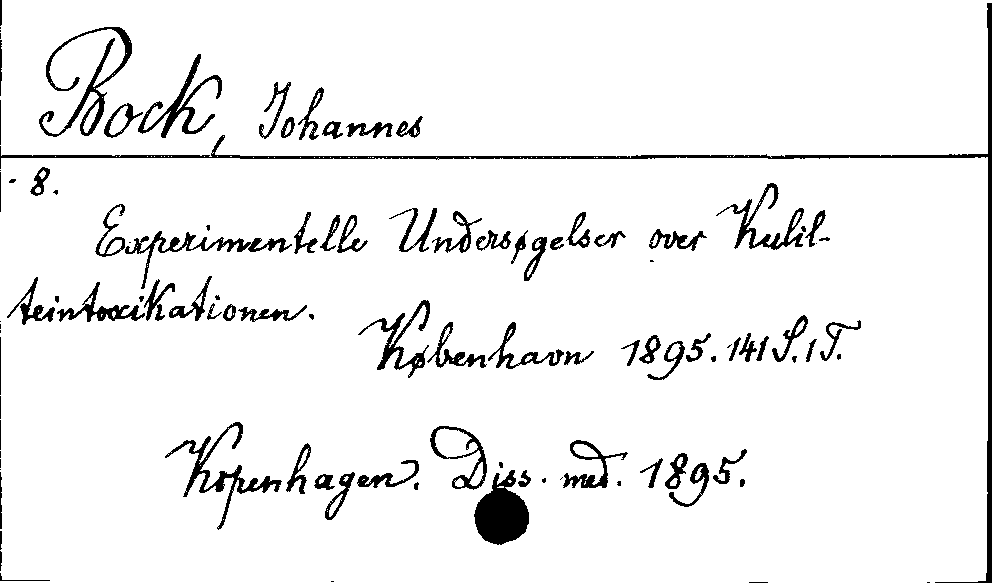 Bock, Johannes
8.
Experimentelle Undersøgelser over Kulil-
teintoxikationen.
København 1895. 141 S. 1 T.
Kopenhagen. Diss. med. 1895.